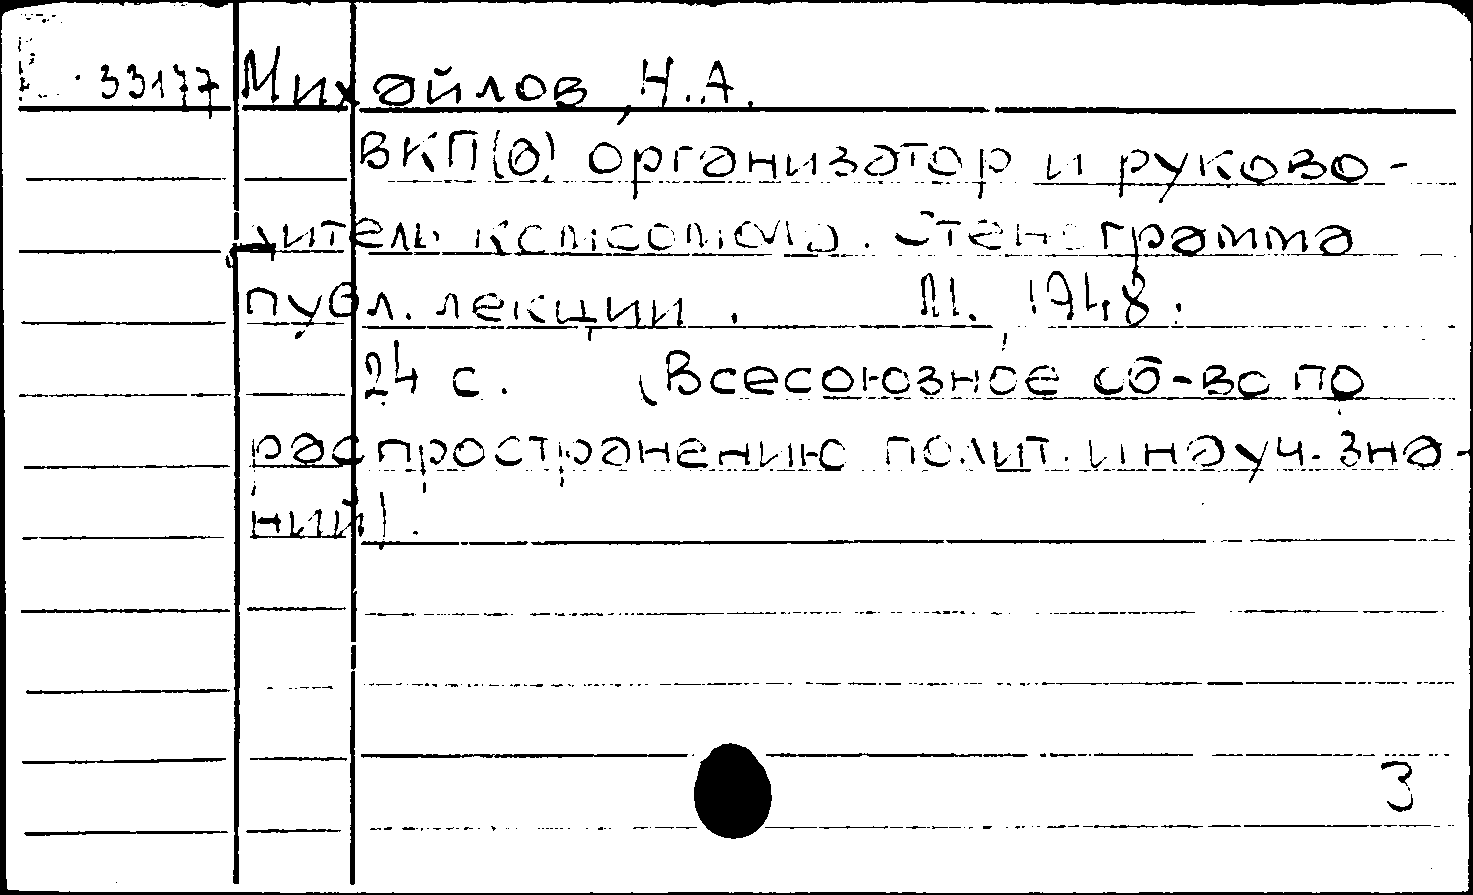 33177 Михайлов, Н.А.
ВКП(б) организатор и руково-
дитель комсомола. Стенограмма
публ. лекции. М., 1948.
24 с. (Всесоюзное об-во по
распространению полит. и науч. зна-
ний).
3